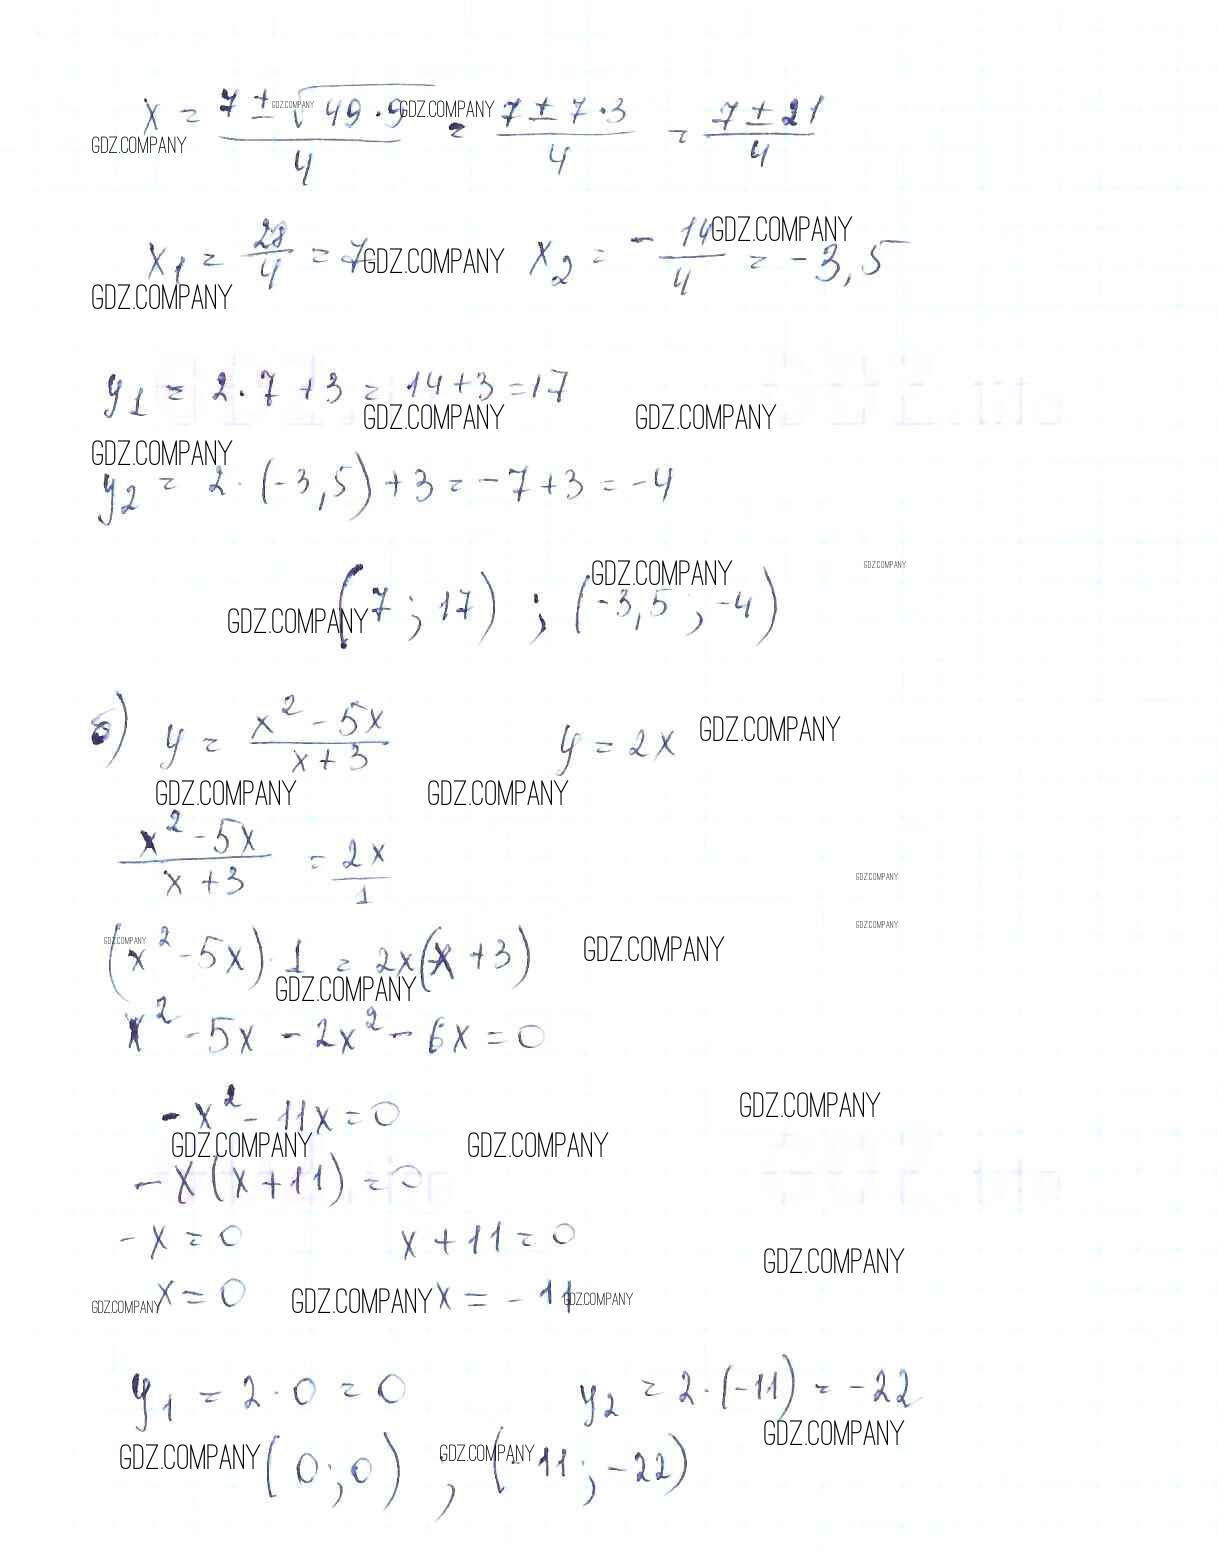 x = (7 ± √(49 · 9))/4 = (7 ± 7 · 3)/4 = (7 ± 21)/4
GDZ.COMPANY GDZ.COMPANY
GDZ.COMPANY
x₁ = 28/4 = 7 x₂ = -14/4 = -3,5
GDZ.COMPANY GDZ.COMPANY
GDZ.COMPANY
y₁ = 2 · 7 + 3 = 14 + 3 = 17
GDZ.COMPANY GDZ.COMPANY
GDZ.COMPANY
y₂ = 2 · (-3,5) + 3 = -7 + 3 = -4
GDZ.COMPANY GDZ.COMPANY
(7 ; 17) ; (-3,5 ; -4)
GDZ.COMPANY
б) y = (x² - 5x)/(x + 3) y = 2x
GDZ.COMPANY
GDZ.COMPANY GDZ.COMPANY
(x² - 5x)/(x + 3) = 2x/1
GDZ.COMPANY
GDZ.COMPANY
(x² - 5x) · 1 = 2x(x + 3)
GDZ.COMPANY GDZ.COMPANY
GDZ.COMPANY
x² - 5x - 2x² - 6x = 0
-x² - 11x = 0
GDZ.COMPANY
GDZ.COMPANY GDZ.COMPANY
-x(x + 11) = 0
-x = 0 x + 11 = 0
GDZ.COMPANY
x = 0 x = -11
GDZ.COMPANY GDZ.COMPANY GDZ.COMPANY
y₁ = 2 · 0 = 0 y₂ = 2 · (-11) = -22
GDZ.COMPANY
(0 ; 0) ; (-11 ; -22)
GDZ.COMPANY GDZ.COMPANY